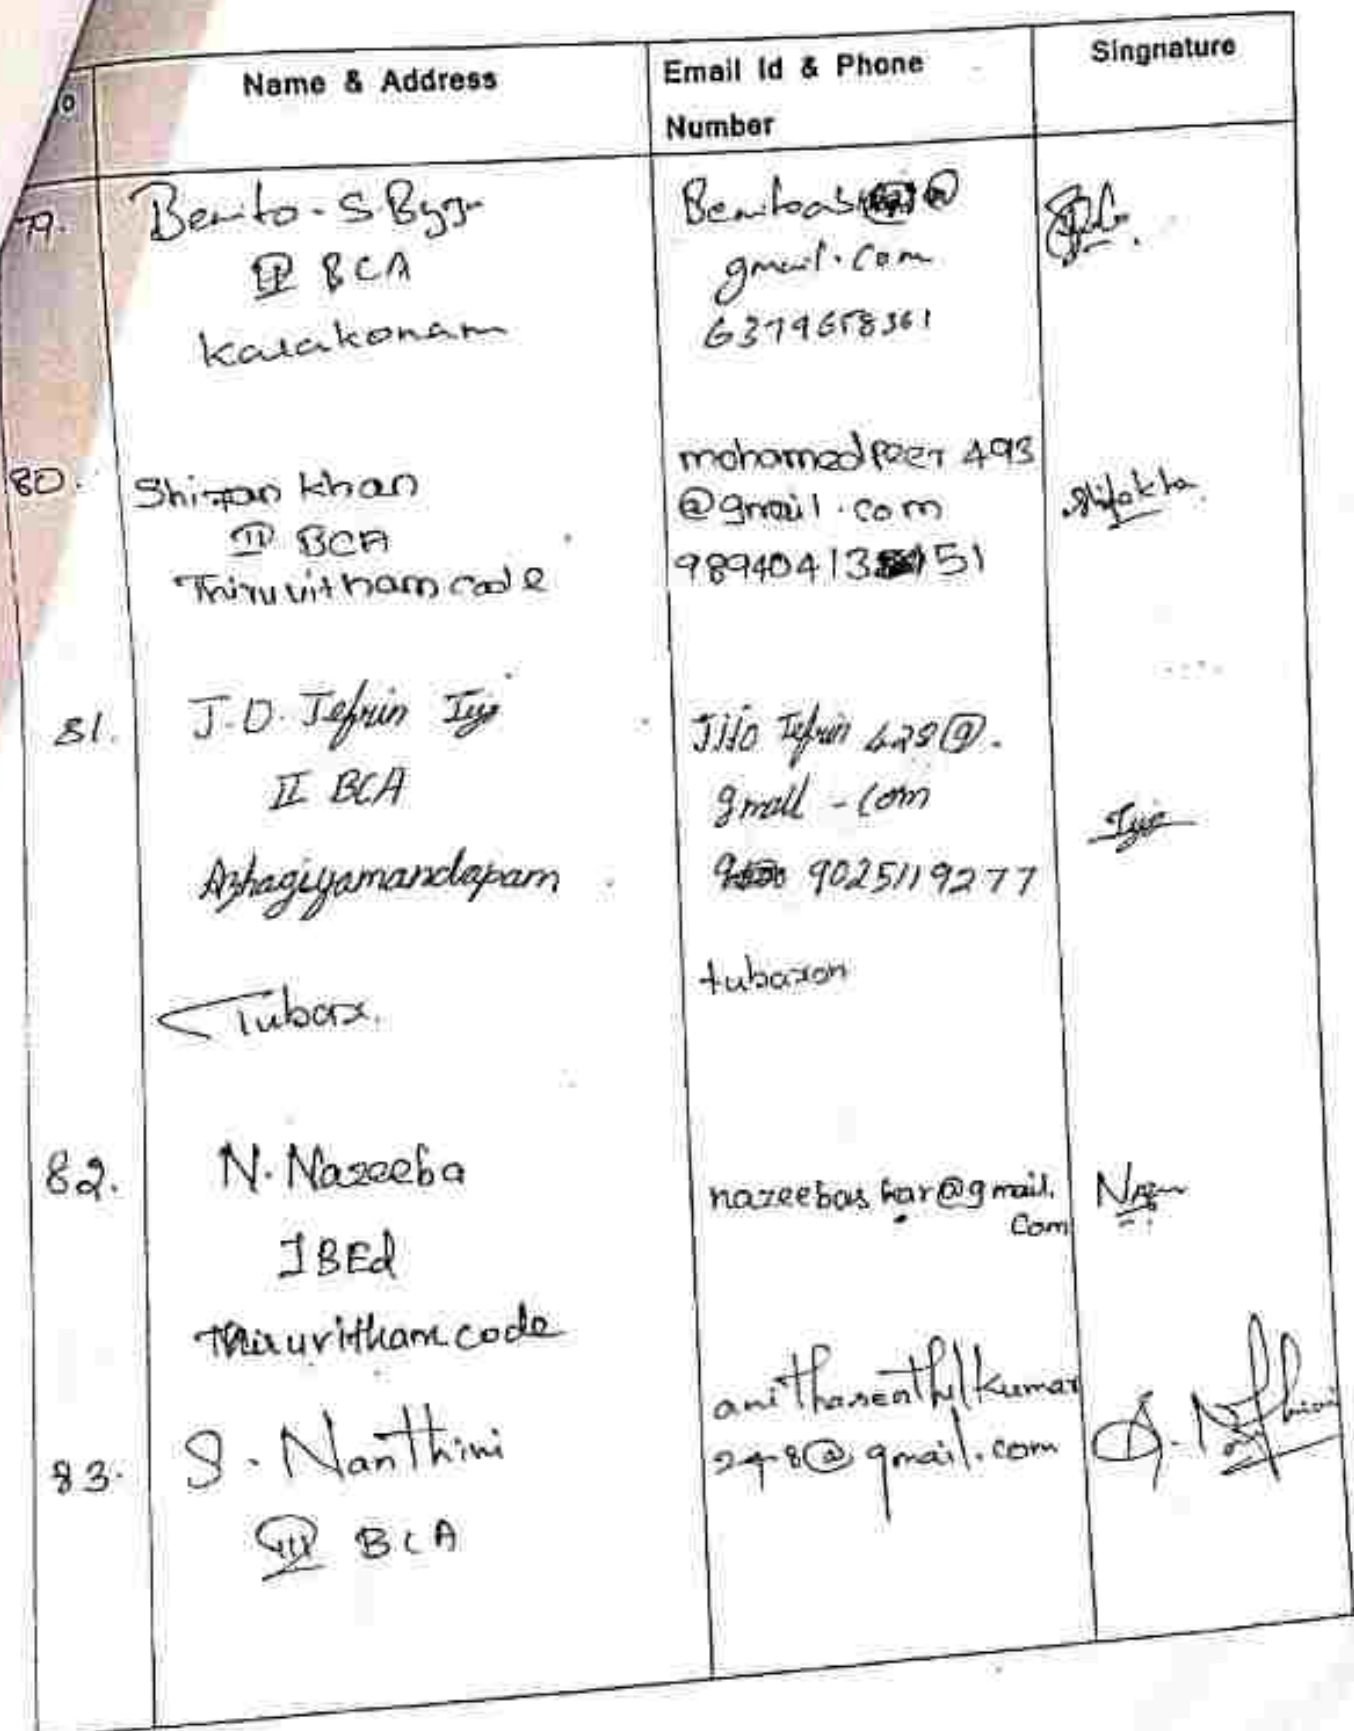 o Name & Address Email Id & Phone Number Singnature
79. Benito - S Byju
II BCA
Karakonam
gmail.com
6379658361
80. Shifan khan
II BCA
Thiruvithamcode
mohamedpeer493
@gmail.com
98940413 151
81. J.D. Jefrin Jijo
II BCA
Azhagiyamandapam
Jijo Jefrin 428@.
gmail - com
9025119277
Jijo
Tubax.
tubaxon
82. N. Nazeeba
I BEd
Thiruvithamcode
nazeebaskar@gmail.
com
83. S. Nanthini
III BCA
anithasenthilkumar
248@gmail.com
S. Nanthini